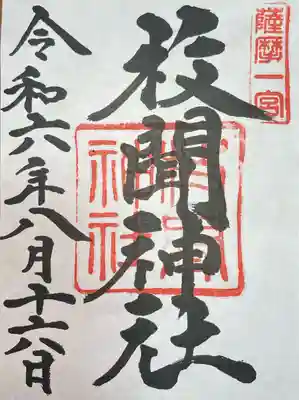 薩摩一宮
枚聞神社
枚聞神社
令和六年八月十六日